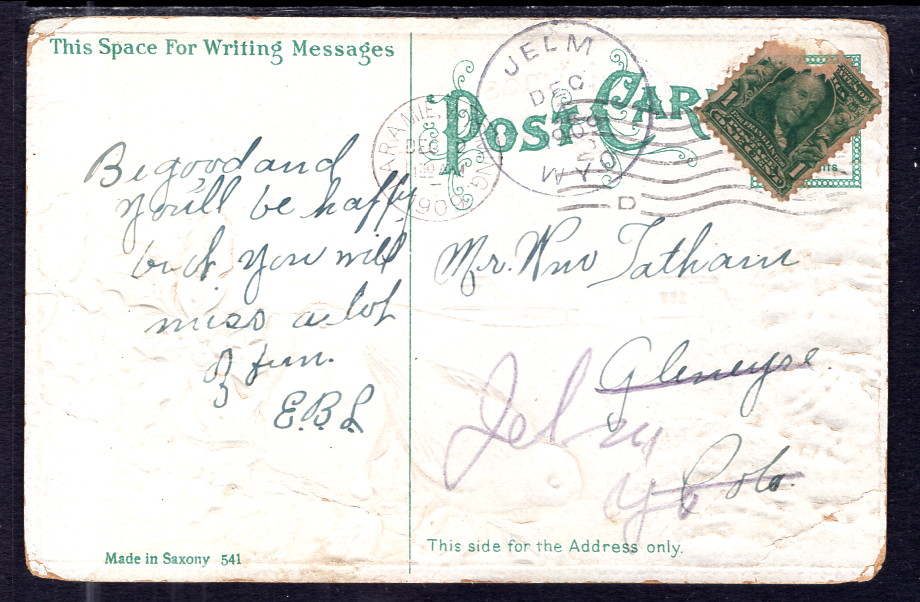 This Space For Writing Messages
POST CARD
JELM
DEC
A.M.
LARAMIE, WYOMING
DEC
D
1
1
Be good and
you'll be happy
but you will
miss a lot
of fun.
E.B.L
Mr. Wm Tatham
Gleneyre
Jelm
Wyo
Colo.
Made in Saxony 541
This side for the Address only.